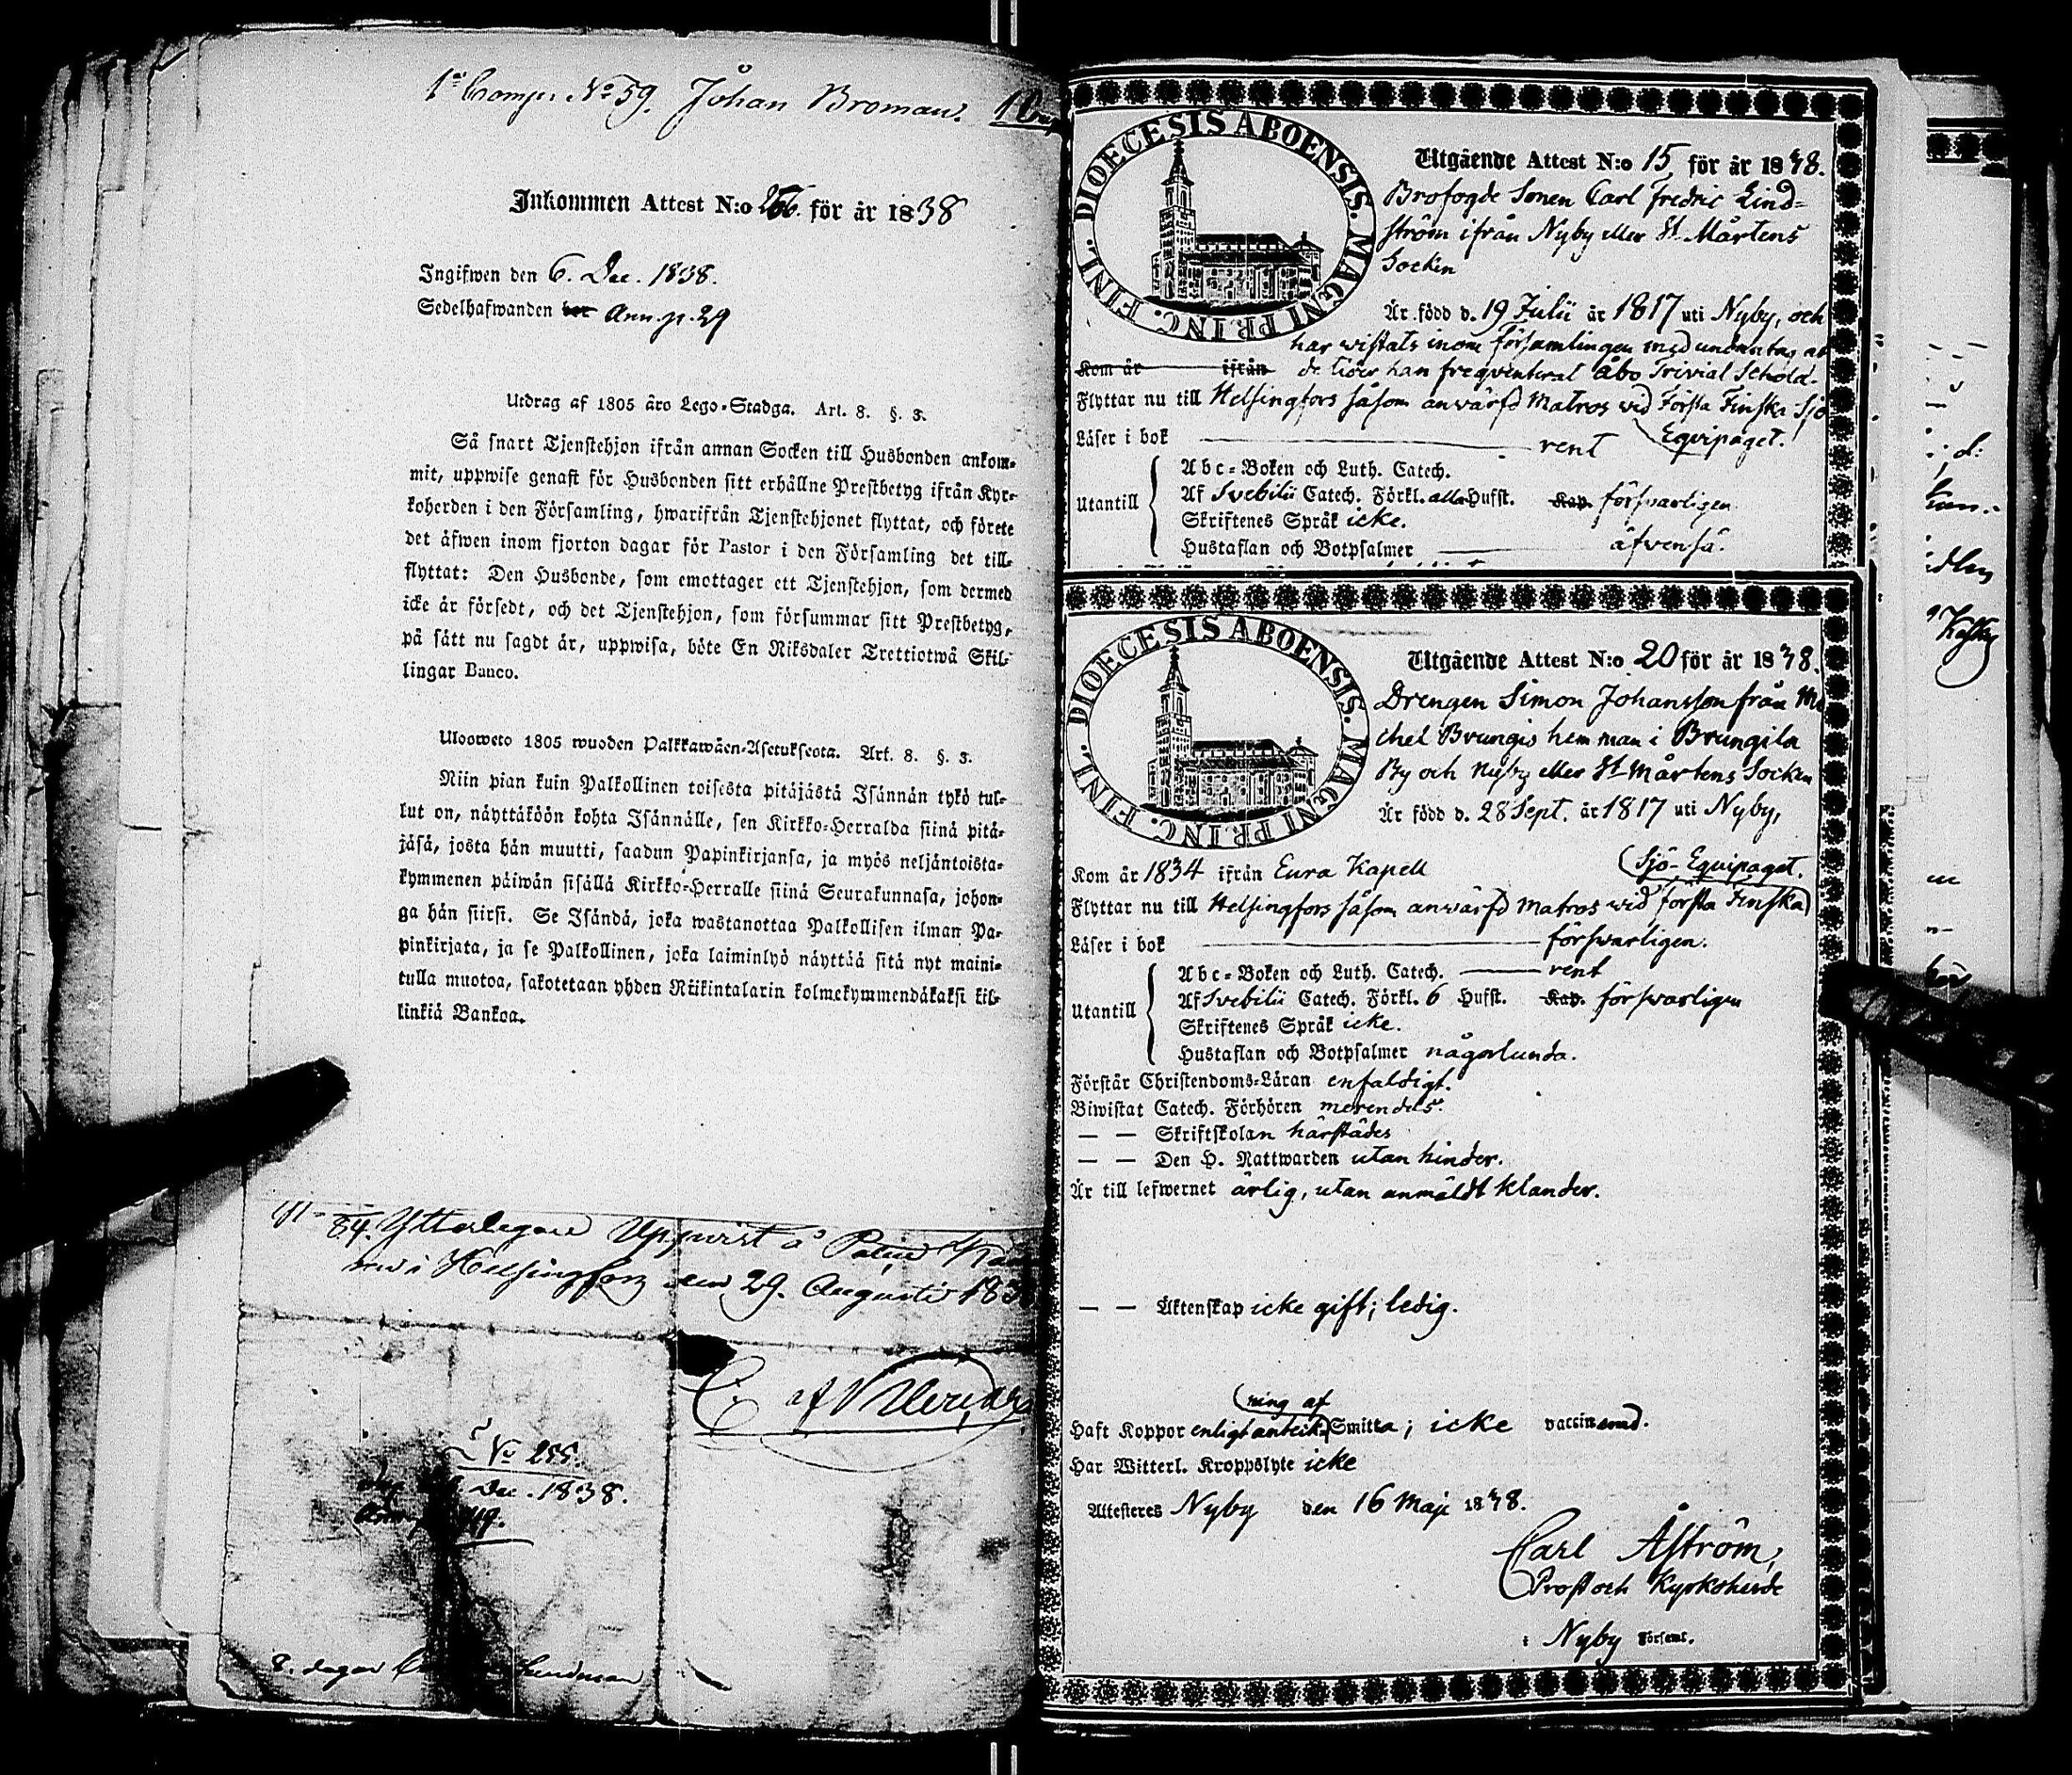 1a Comp. No 59. Johan Broman.
Inkommen Attest N:o 256. för år 1838
Ingifwen den 6. Dec. 1838.
Sedelhafwanden Ann. p. 29
Utdrag af 1805 åro Lego-Stadga. Art. 8. §. 3.
Så snart Tjenstehjon ifrån annan Socken till Husbonden ankom-
mit, uppwise genast för Husbonden sitt erhållne Prestbetyg ifrån Kyr-
koherden i den Församling, hwarifrån Tjenstehjonet flyttat, och förete
det äfwen inom fjorton dagar för Pastor i den Församling det till-
flyttat: Den Husbonde, som emottager ett Tjenstehjon, som dermed
icke är försedt, och det Tjenstehjon, som försummar sitt Prestbetyg,
på sätt nu sagdt är, uppwisa, böte En Riksdaler Trettiotwå Skil-
lingar Banco.
Ulosweto 1805 wuoden Palkkawäen-Asetuksesta. Art. 8. §. 3.
Niin pian kuin Palkollinen toisesta pitäjästä Isännän tykö tul-
lut on, näyttäköön kohta Isännälle, sen Kirkko-Herralda siinä pitä-
jäsä, josta hän muutti, saadun Papinkirjansa, ja myös neljäntoista-
kymmenen päiwän sisällä Kirkko-Herralle siinä Seurakunnasa, johon-
ga hän siirsi. Se Isändä, joka wastanottaa Palkollisen ilman Pa-
pinkirjata, ja se Palkollinen, joka laiminlyö näyttää sitä nyt maini-
tulla muotoa, sakotetaan yhden Riikintalarin kolmekymmendäkaksi kil-
linkiä Bankoa.
84. Ytterligare Uppvist å Police
i Helsingfors den 29. Augusti 183
C. af
No 255.
Dec. 1838.
8. dagar Lundman
DIOECESIS ABOENSIS. MAGNI PRINC. FINL.
Utgående Attest N:o 15 för år 1838.
Brofogde Sonen Carl Fredric Lind-
ström ifrån Nyby eller St Mårtens
Socken
Är född d. 19 Julii år 1817 uti Nyby, och
har wistats inom församlingen med undantag af
Kom år ifrån de tider han freqventerat Åbo Trivial Schola.
Flyttar nu till Helsingfors såsom anwärfd Matros wid Första Finska Sjö
Equipaget.
Läser i bok rent
Utantill
Abc-Boken och Luth. Catech.
Af Svebilii Catech. Förkl. alla Hufst. Kap. förswarligen
Skriftenes Språk icke.
Hustaflan och Botpsalmer äfvenså.
DIOECESIS ABOENSIS. MAGNI PRINC. FINL.
Utgående Attest N:o 20 för år 1838.
Drengen Simon Johansson från Mi
chel Brungis hemman i Brungila
By och Nyby eller St Mårtens Socken
Är född d. 28 Sept. år 1817 uti Nyby,
Kom år 1834 ifrån Eura Kapell
Sjö-Equipaget.
Flyttar nu till Helsingfors såsom anwärfd Matros wid första Finska
Läser i bok förswarligen.
Utantill
Abc-Boken och Luth. Catech. rent
Af Svebilii Catech. Förkl. 6 Hufst. Kap. förswarligen
Skriftenes Språk icke.
Hustaflan och Botpsalmer någorlunda.
Förstår Christendoms-Läran enfaldigt.
Biwistat Catech. Förhören merendels.
— — Skriftskolan härstädes
— — Den H. Nattwarden utan hinder.
Är till lefwernet ärlig, utan anmäldt klander.
— — Äktenskap icke gift; ledig.
ning af
Haft Koppor enligt anteck- Smitta; icke vaccinerad.
Har Witterl. Kroppslyte icke
Attesteres Nyby den 16 Maji 1838.
Carl Åström,
Prost och Kyrkoherde
i Nyby Församl.